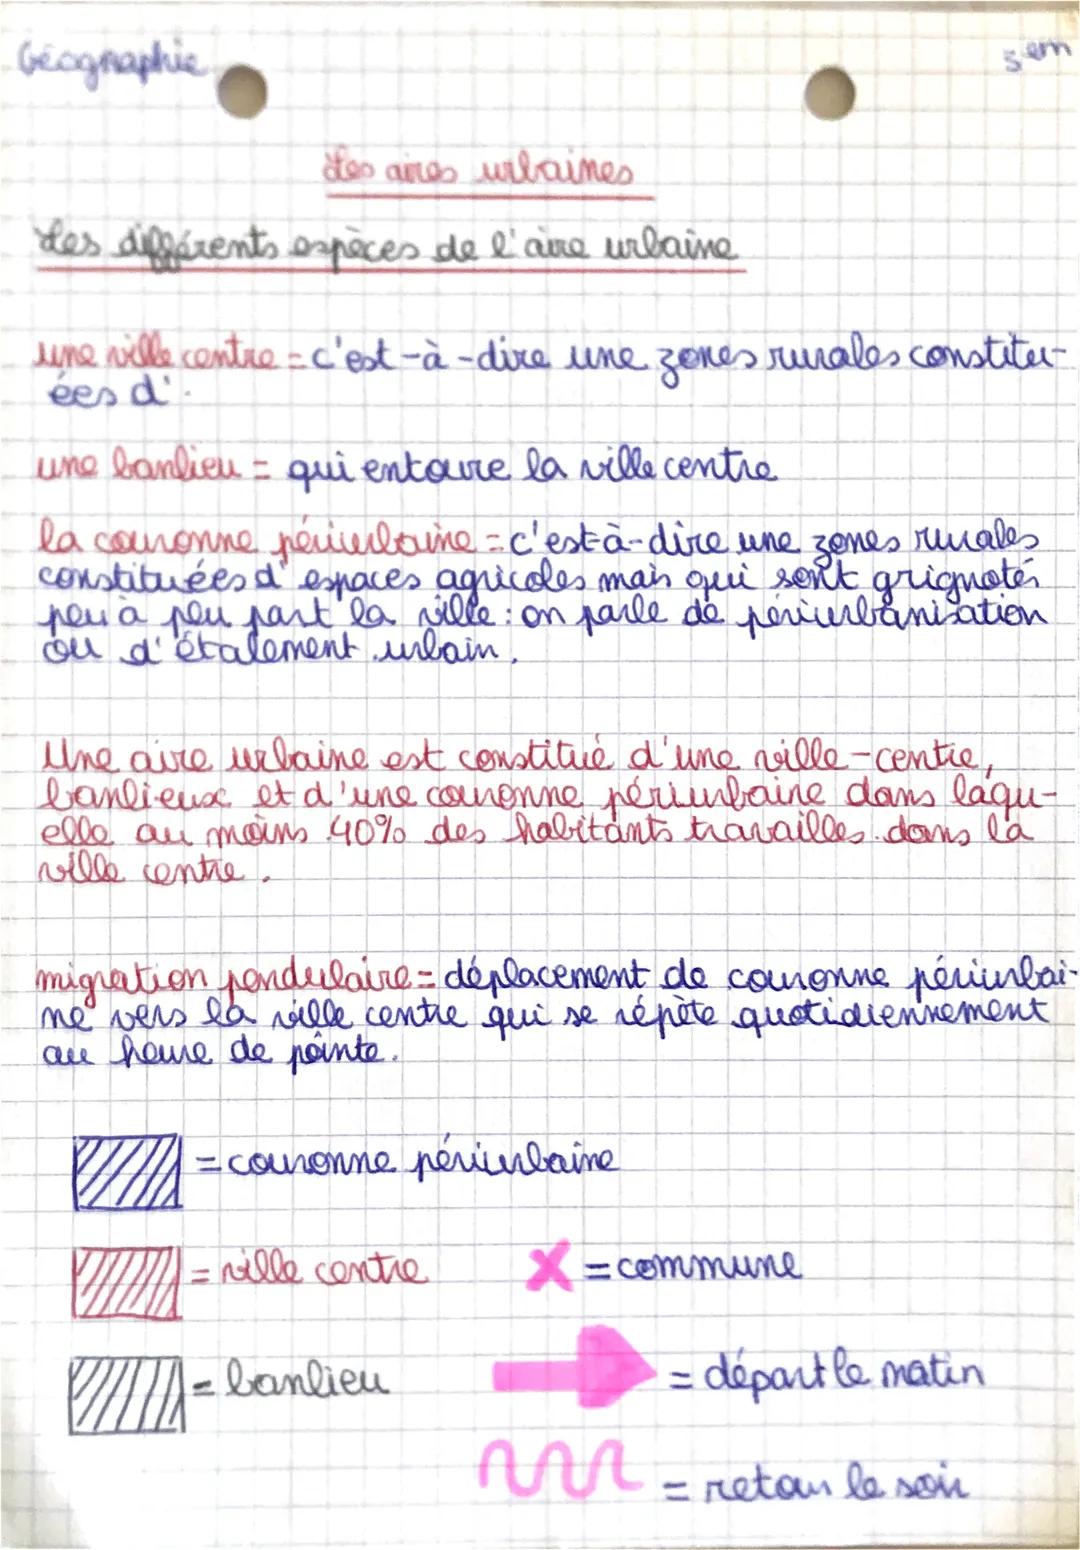 Géographie
3em
Les aires urbaines
Les différents espèces de l'aire urbaine
une ville centre = c'est-à-dire une zones rurales constitu-
ées d'.
une banlieu = qui entoure la ville centre
la couronne périurbaine = c'est à-dire une zones rurales
constituées d'espaces agricoles mais qui sont grignotés
peu à peu part la ville : on parle de périurbanisation
ou d'étalement urbain.
Une aire urbaine est constitué d'une ville-centre,
banlieux et d'une couronne périurbaine dans laqu-
elle au moins 40% des habitants travailles dans la
ville centre.
migration pendulaire = déplacement de couronne périurbai-
ne vers la ville centre qui se répète quotidiennement
au heure de pointe.
= couronne périurbaine
= ville centre
X = commune
= banlieu
= départ le matin
= retour le soir